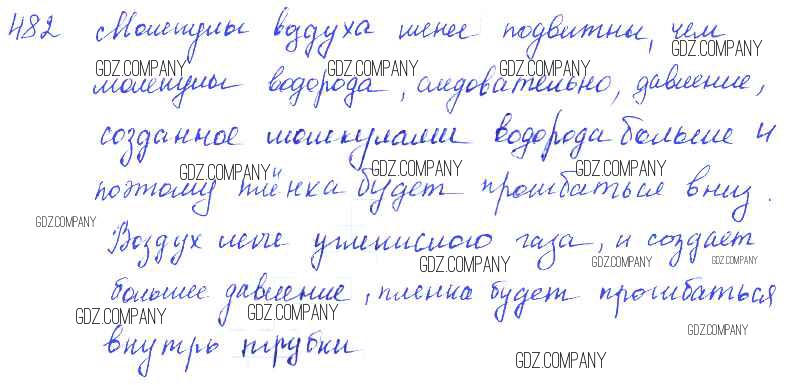 482 Молекулы воздуха менее подвижны, чем
GDZ.COMPANY
GDZ.COMPANY GDZ.COMPANY GDZ.COMPANY
молекулы водорода, следовательно, давление,
созданное молекулами водорода больше и
GDZ.COMPANY GDZ.COMPANY GDZ.COMPANY
поэтому плёнка будет прогибаться вниз.
GDZ.COMPANY
Воздух легче углекислого газа, и создает
GDZ.COMPANY GDZ.COMPANY GDZ.COMPANY
большее давление, пленка будет прогибаться
GDZ.COMPANY GDZ.COMPANY
GDZ.COMPANY
внутрь трубки
GDZ.COMPANY